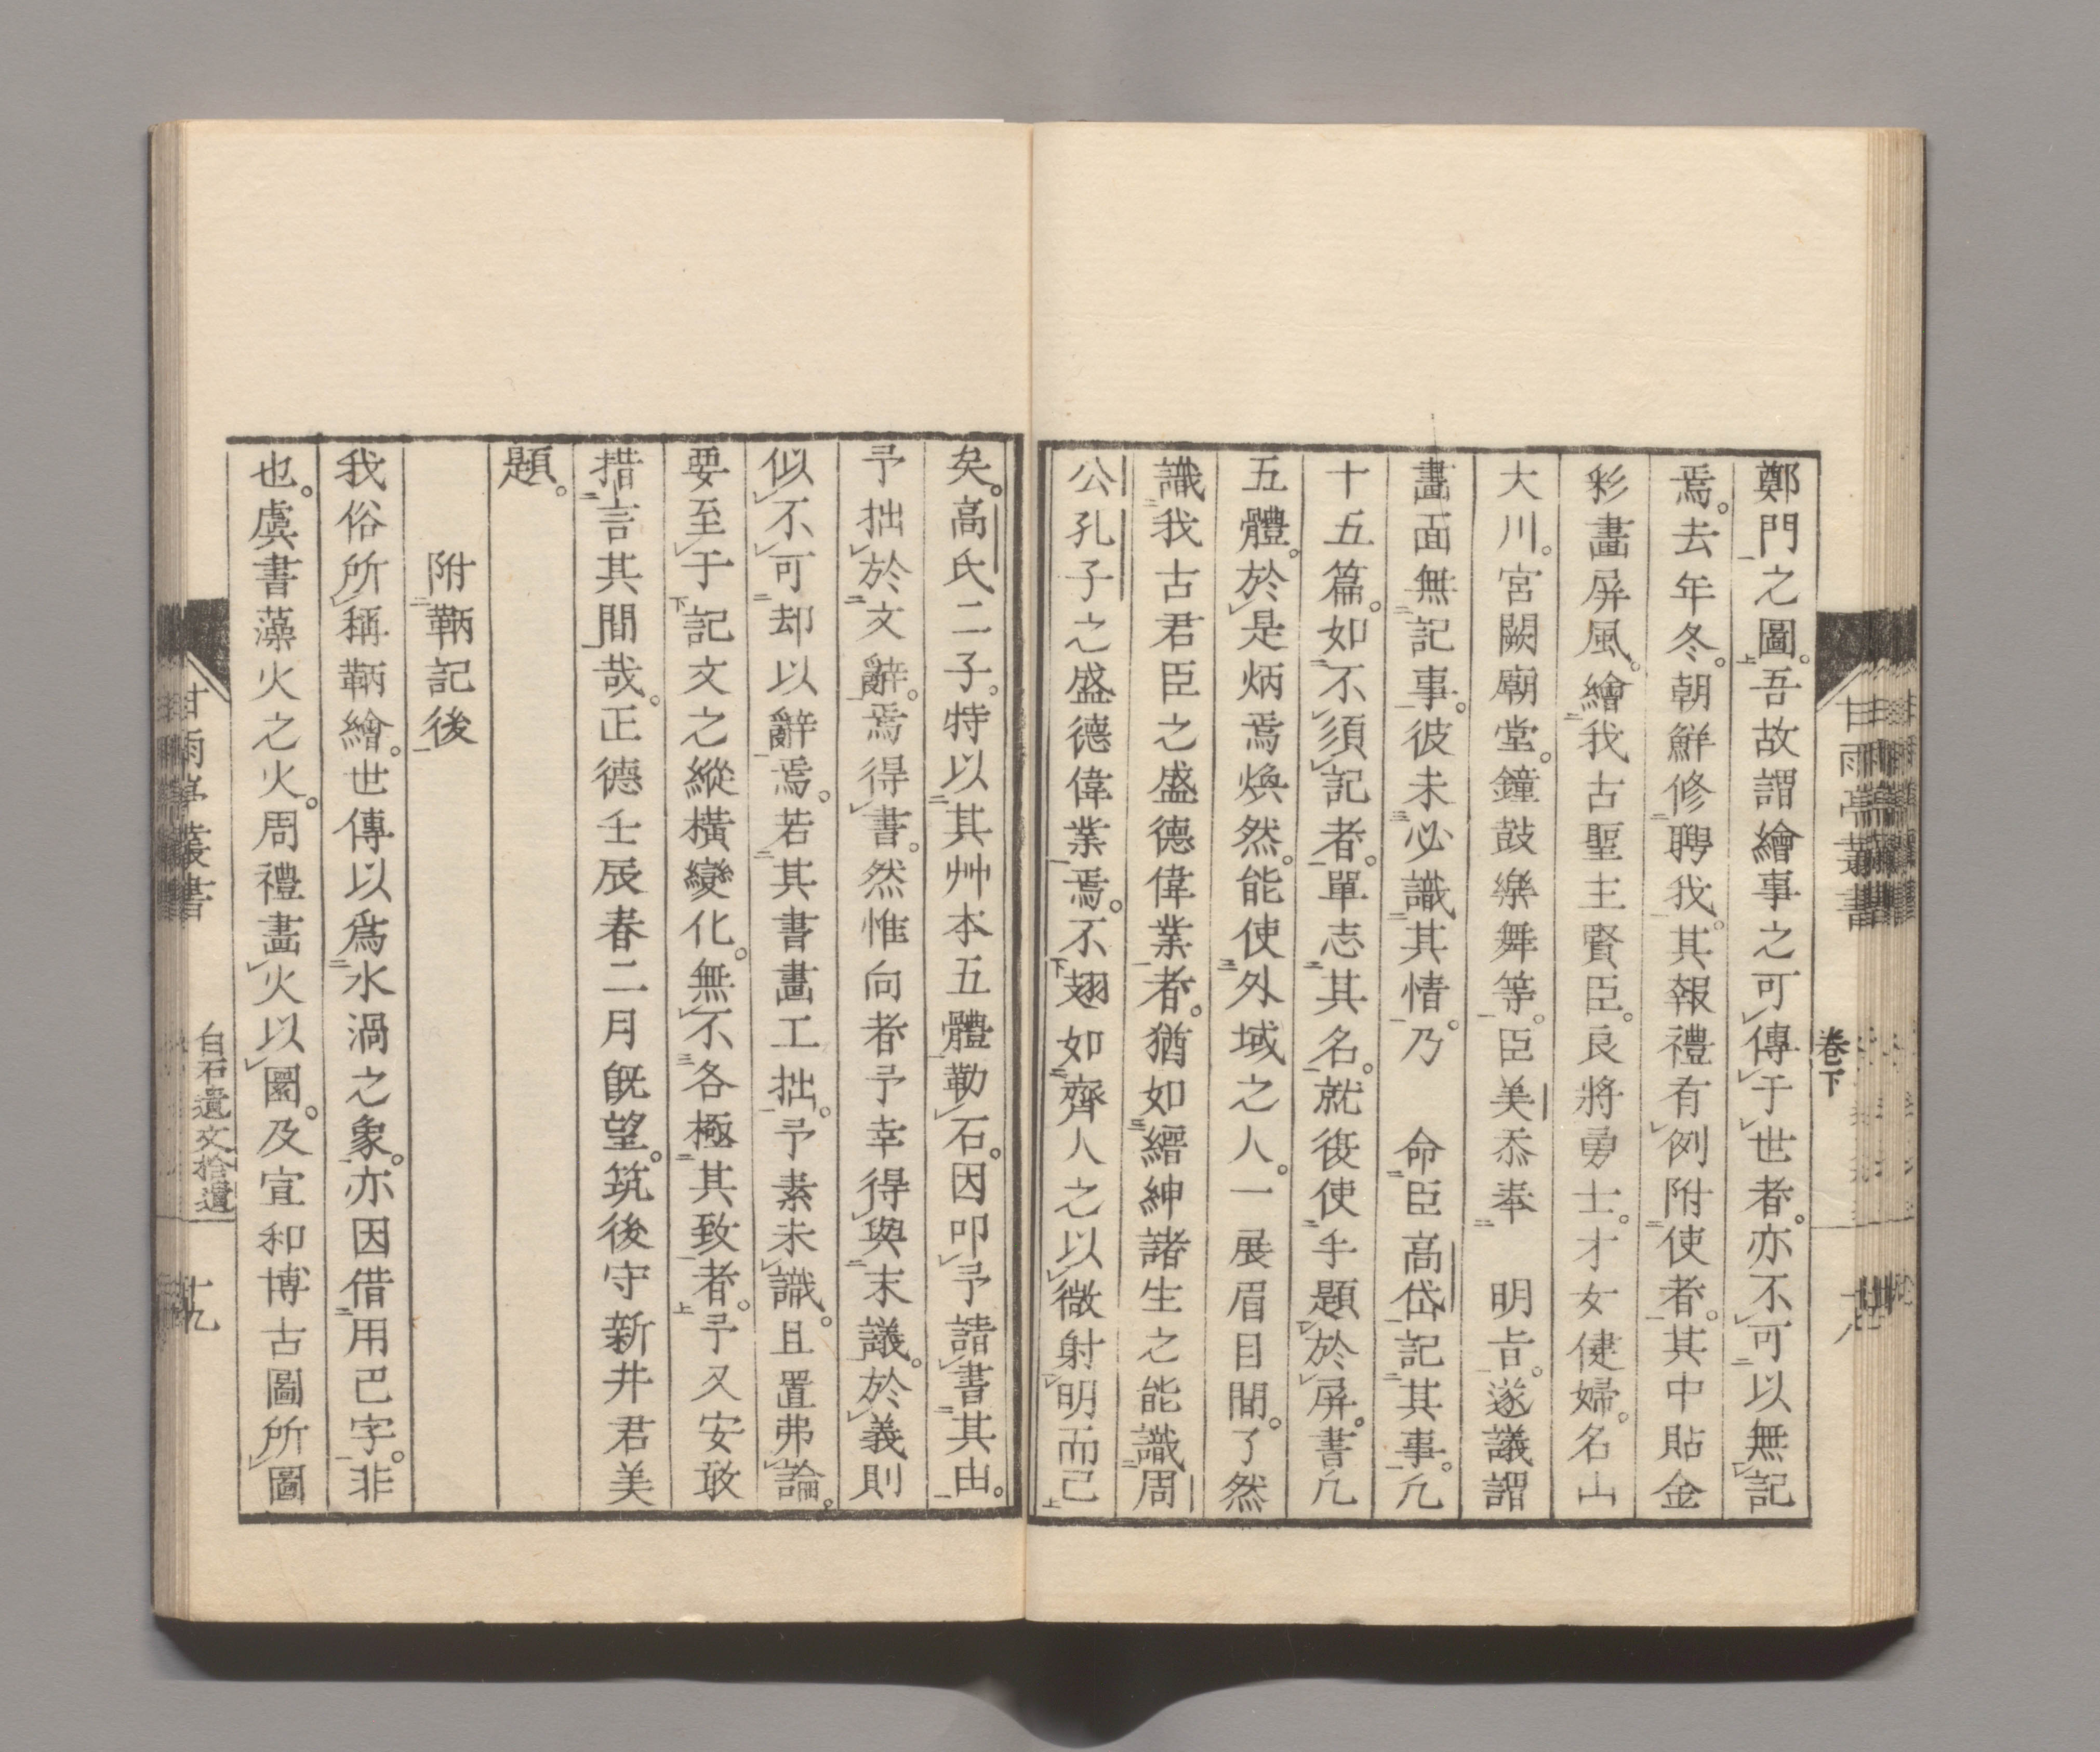 鄭門之圖。吾故謂繪事之可傳于世者。亦不可以無記
焉。去年冬。朝鮮修聘我。其報禮有例附使者。其中貼金
彩畫屏風。繪我古聖主賢臣。良將勇士。才女健婦。名山
大川。宮闕廟堂。鐘鼓樂舞等。臣美忝奉 明旨。遂議謂
畫面無記事。彼未必識其情。乃 命臣高岱記其事。凢
十五篇。如不須記者。單志其名。就復使手題於屏。書凢
五體。於是炳焉煥然。能使外域之人。一展眉目間。了然
識我古君臣之盛德偉業者。猶如縉紳諸生之能識周
公孔子之盛德偉業焉。不翅如齊人之以微射明而已
矣。高氏二子。特以其艸本五體勒石。因叩予請書其由。
予拙於文辭。焉得書。然惟向者予幸得與末議。於義則
似不可却以辭焉。若其書畫工拙。予素未識。且置弗論。
要至于記文之縱橫變化。無不各極其致者。予又安敢
措言其間哉。正德壬辰春二月既望。筑後守新井君美
題。
附鞆記後
我俗所稱鞆繪。世傳以爲水渦之象。亦因借用巴字。非
也。虞書藻火之火。周禮畫火以圜。及宣和博古圖所圖
甘雨亭叢書
卷下
十八
甘雨亭叢書
白石遺文拾遺
十九